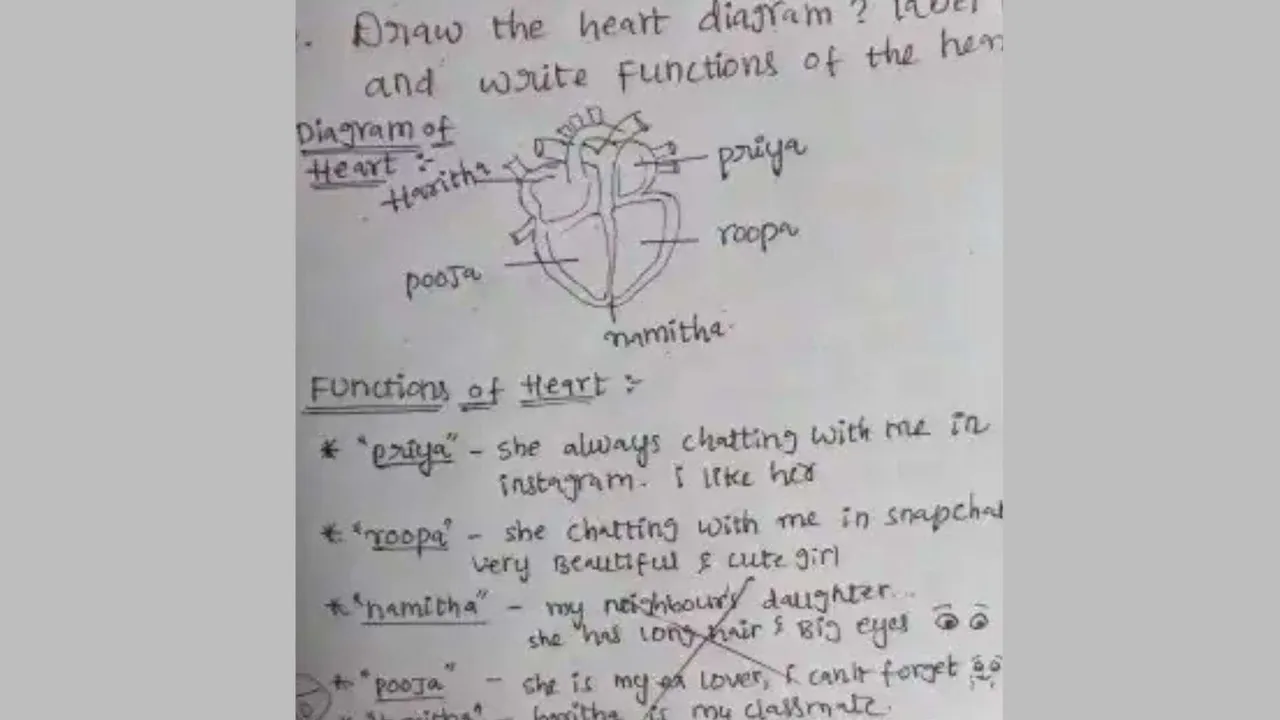 . Draw the heart diagram ? label
and write Functions of the hea
Diagram of
Heart :-
Haritha
priya
roopa
pooja
namitha.
Functions of Heart :-
* "priya" - she always chatting with me in
instagram. i like her
* "roopa" - she chatting with me in snapchat
very Beautiful & cute girl
* "namitha" - my neighbour's daughter...
she has long hair & Big eyes
* "pooja" - she is my ex lover, i can't forget
haritha is my classmate.